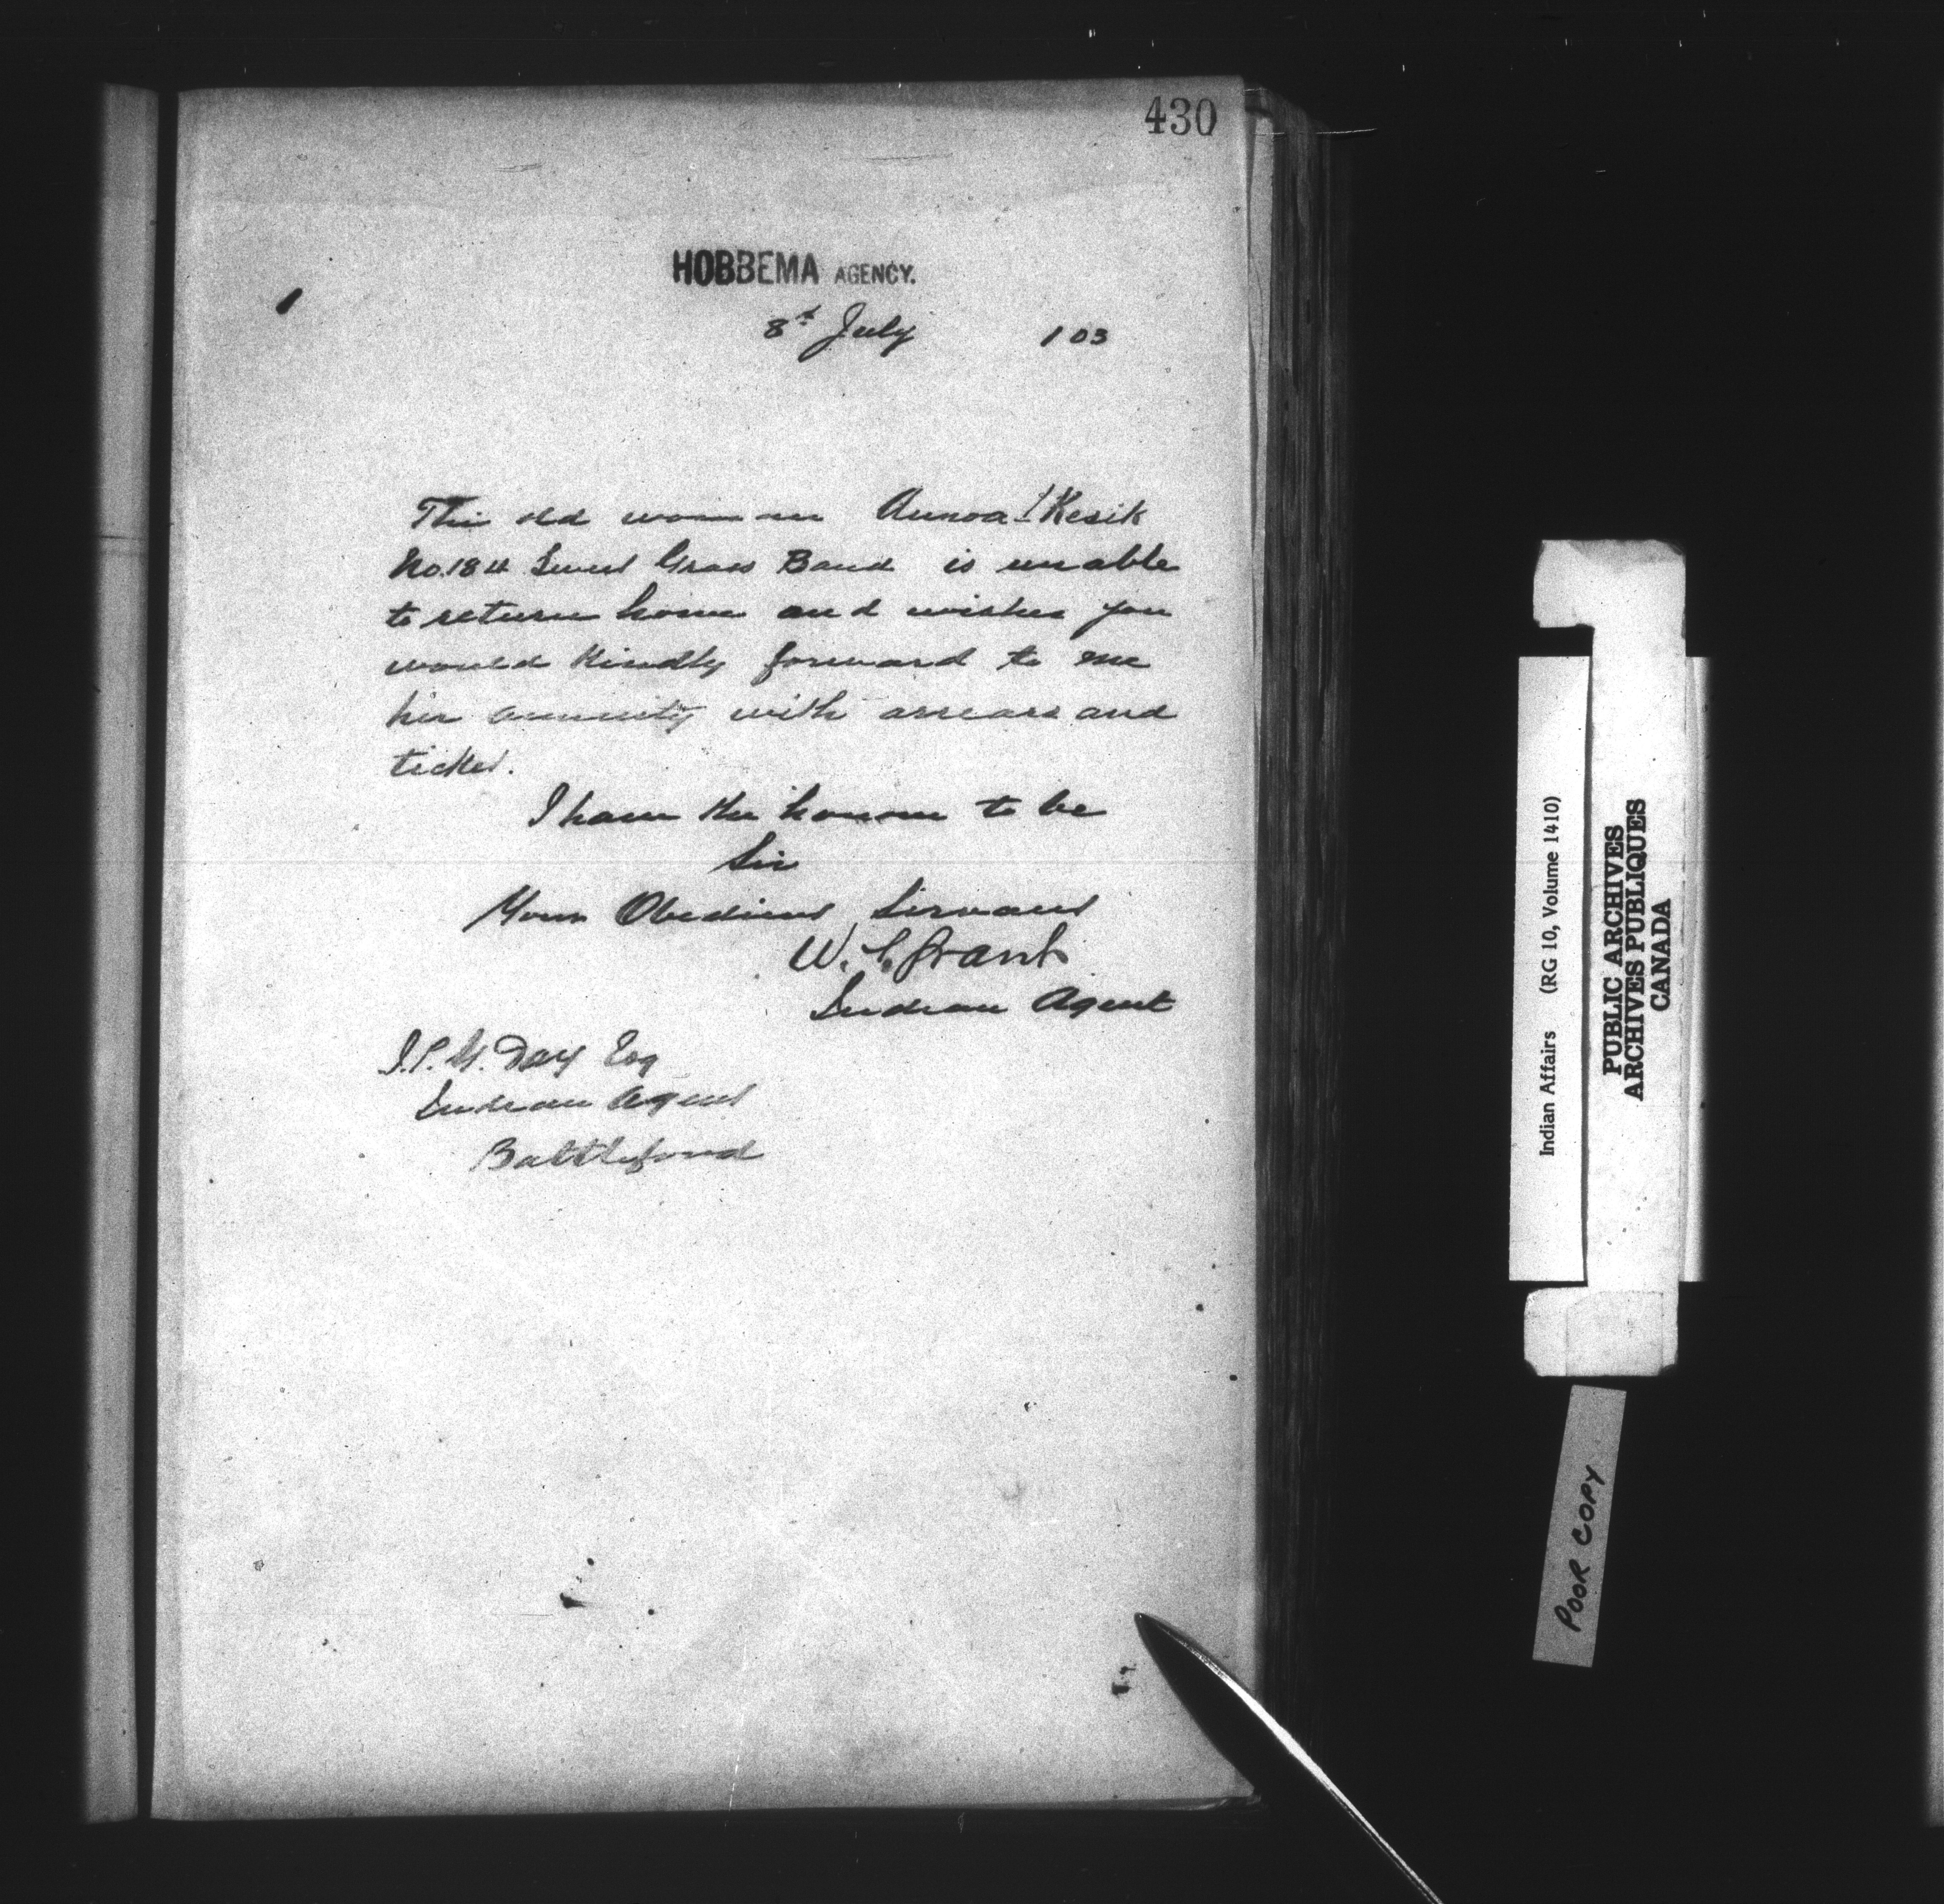 430
HOBBEMA AGENCY.
8th July 103
The old woman Kesik
No. 184 Sweet Grass Band is unable
to return home and wishes you
would kindly forward to me
her annuity with arrears and
ticket.
I have the honour to be
Sir
Your Obedient Servant
W. S. Grant
Indian Agent
J.P.G. Day Esq
Indian Agent
Battleford
Indian Affairs (RG 10, Volume 1410)
PUBLIC ARCHIVES
ARCHIVES PUBLIQUES
CANADA
POOR COPY